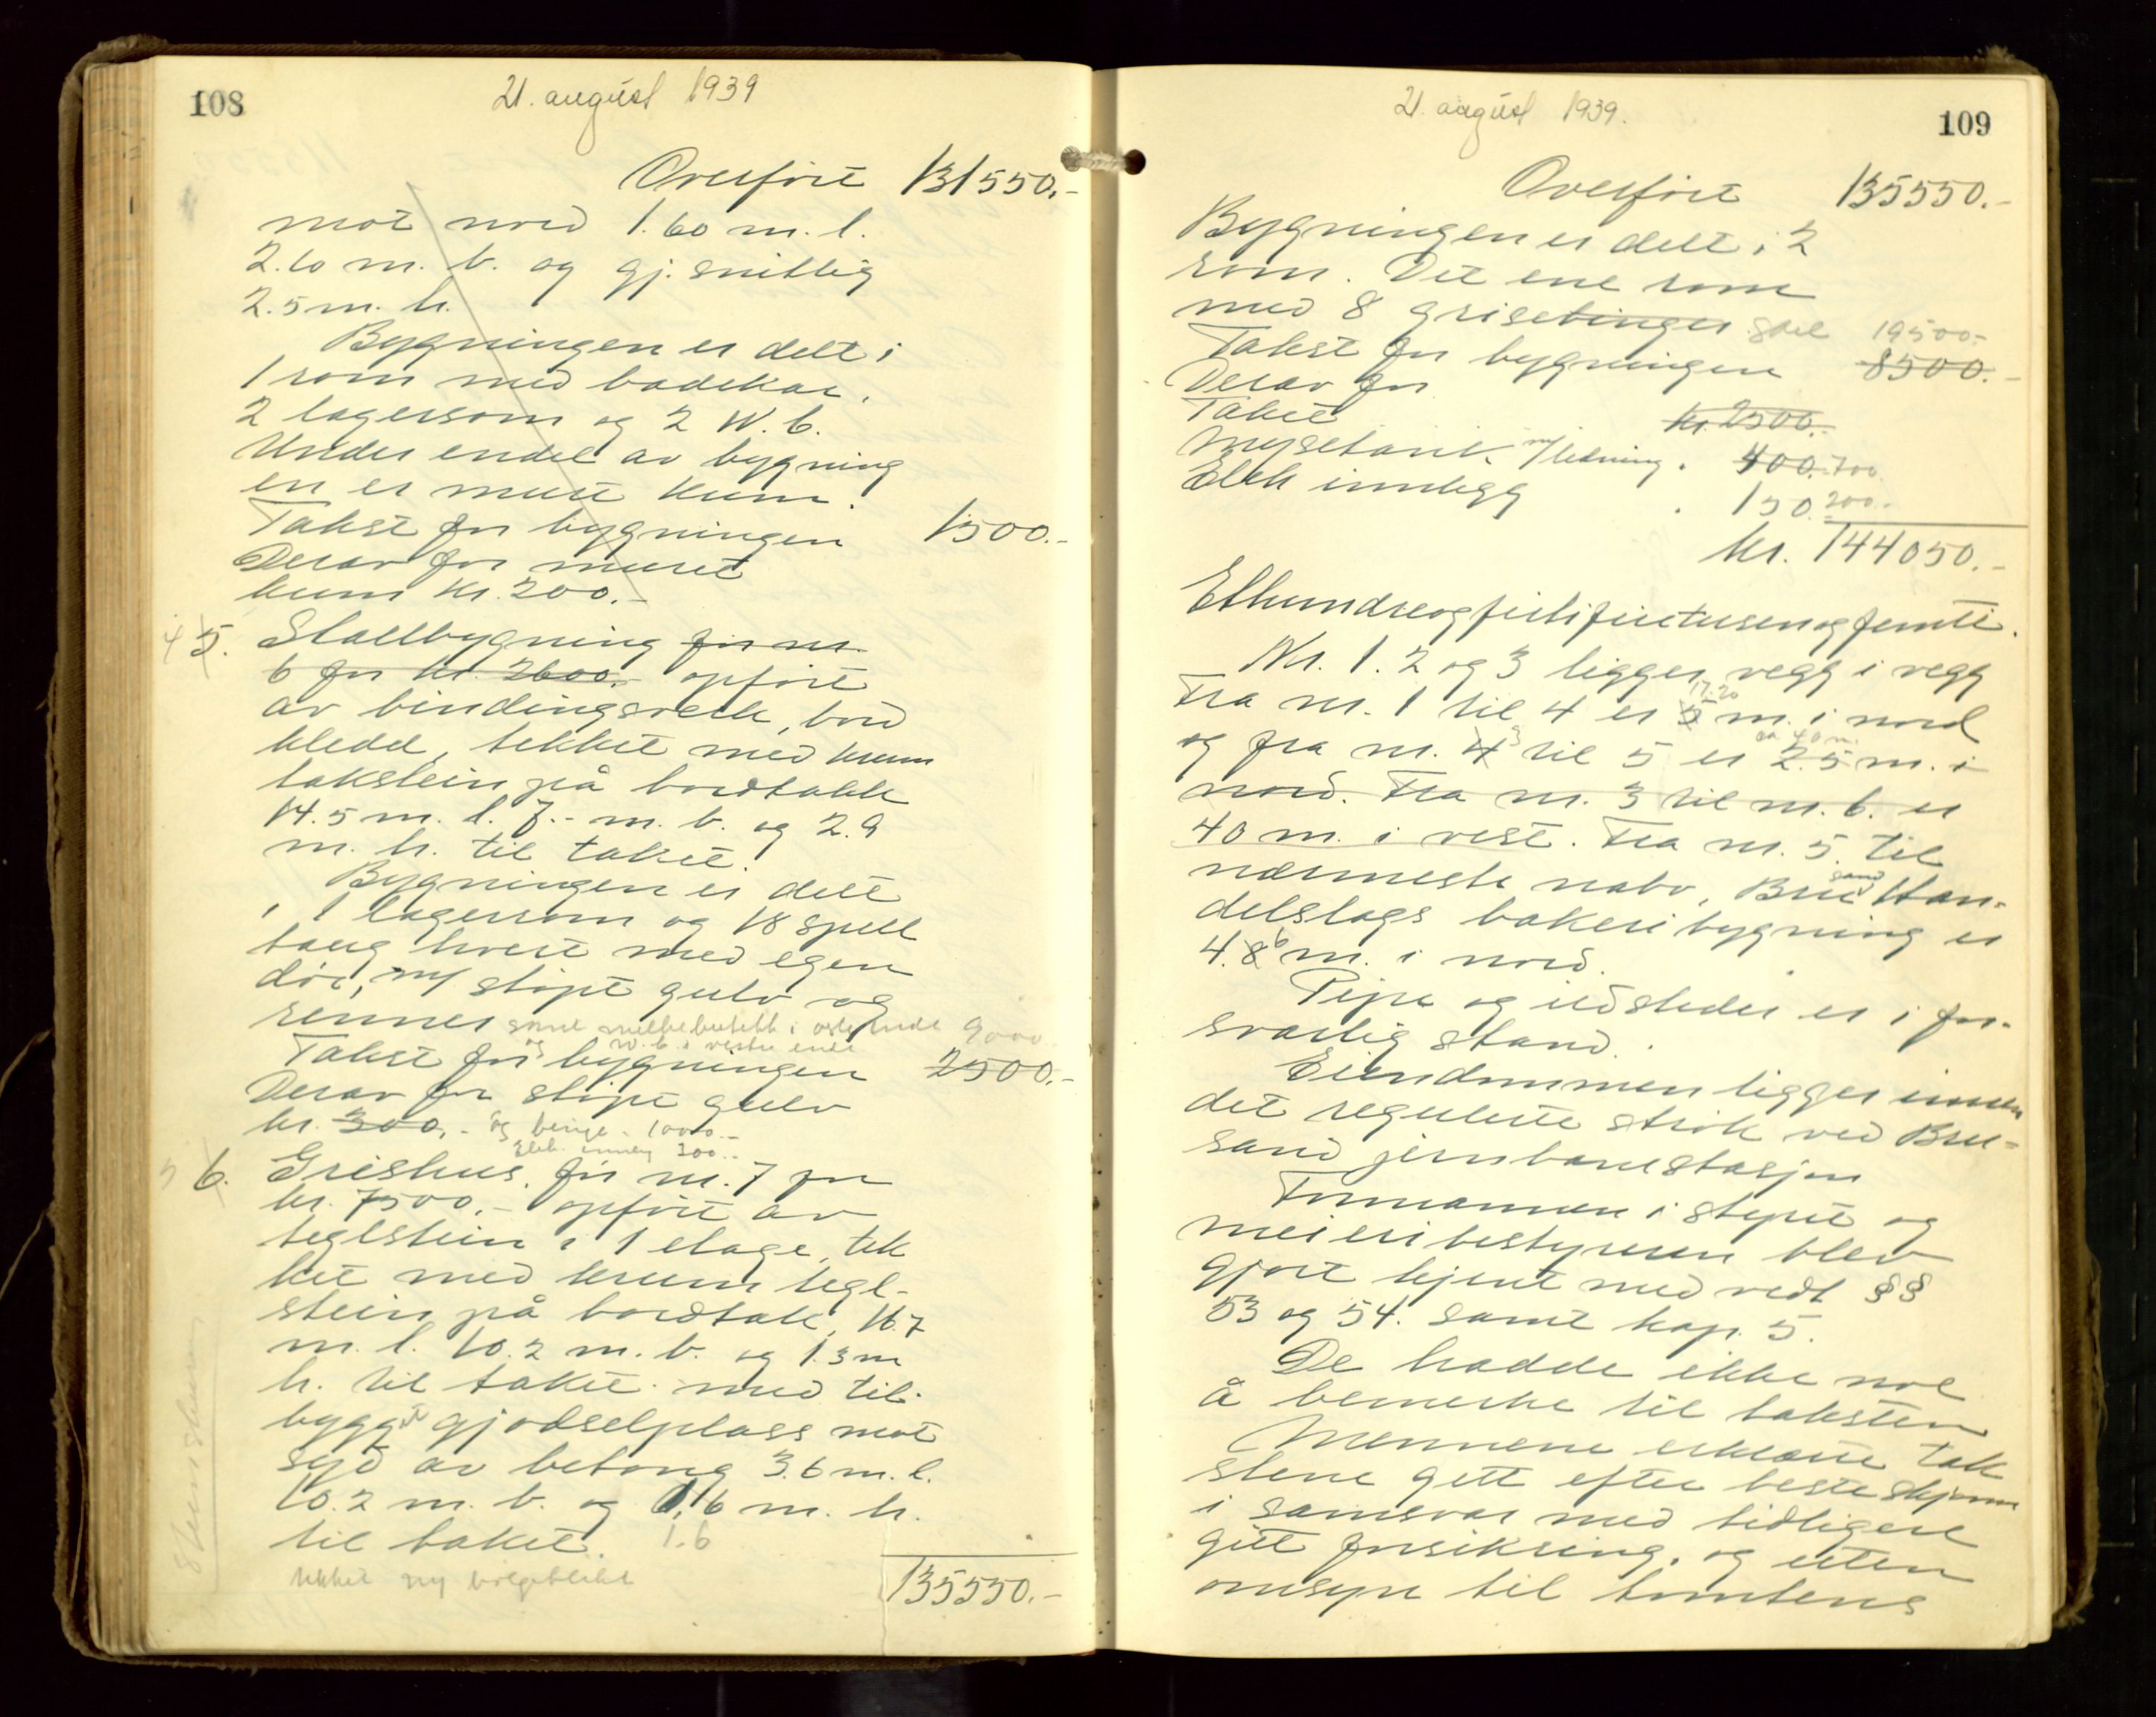 108
21. august 1939
Overført 131550.-
mot nord 1.60 m. l.
2.10 m. b. og gj. snittlig
2.5 m. h.
Bygningen er delt i
1 rom med badekar,
2 lagerrom og 2 W.b.
Under endel av bygning
en er muret kum.
Takst for bygningen 1500.-
Derav for muret
kum kr. 200.-
4 5. Stallbygning før nr.
6 for kr. 2600.- opført
av bindingsverk, bord
kledd, tekket med krum
takstein på bordtakk
14.5 m. l. 7.- m. b. og 2.9
m. h. til taket.
Bygningen er delt
i 1 lagerrom og 18 spell
taug hvert med egen
dør, m/ støpt gulv og
renner samt melkebutikk i østre ende 9000
og W.b. i vestre ende
Takst for bygningen 2500.-
Derav for støpt gulv
kr. 300.- og binge - 1000.-
Elek. innleg 300.-
5 6. Grishus. før nr. 7 for
kr. 7500.- opført av
teglstein i 1 etage, tek
ket med krum tegl-
stein på bordtakk, 16.7
m. l. 10.2 m. b. og 1.3 m
h. til taket. med til-
bygget gjødselplass mot
syd av betong 3.6 m. l.
10.2 m. b. og 1.6 m. h.
til taket. 1.6
tekket m/ bølgeblikk
135550.-
109
21. august 1939.
Overført 135550.-
Bygningen er delt i 2
rom. Det ene rom
med 8 grisebinger 19500.-
Takst for bygningen 8500.-
Derav for
Taket kr. 2500.-
Mysetank m/ledning. 400. 700.
Elek innlegg . 150. 200.-
kr. 144050.-
Etthundreogførtifiretusenogfemti.
Nr. 1. 2 og 3 ligger vegg i vegg
17.20
Fra nr. 1 til 4 er 5 m. i nord
3 ca 40 m.
og fra nr. 4 til 5 er 2.5 m. i
nord. Fra nr. 3 til nr. 6. er
40 m. i vest. Fra nr. 5. til
nærmeste nabo, Bruesand Han-
delslags bakeribygning er
4.8 6 m. i nord.
Pipe og ildsteder er i for-
svarlig stand.
Eiendommen ligger innen
det regulerte strøk ved Brue-
sand jernbanestasjon
Formannen i styret og
meieribestyreren blev
gjort kjent med vedt §§
53 og 54. samt kap. 5.
De hadde ikke noe
å bemerke til taksten
Mennene erklærte tak
stene gitt efter beste skjønn
i samsvar med tidligere
gitt forsikring. og uten
omsyn til tomtens